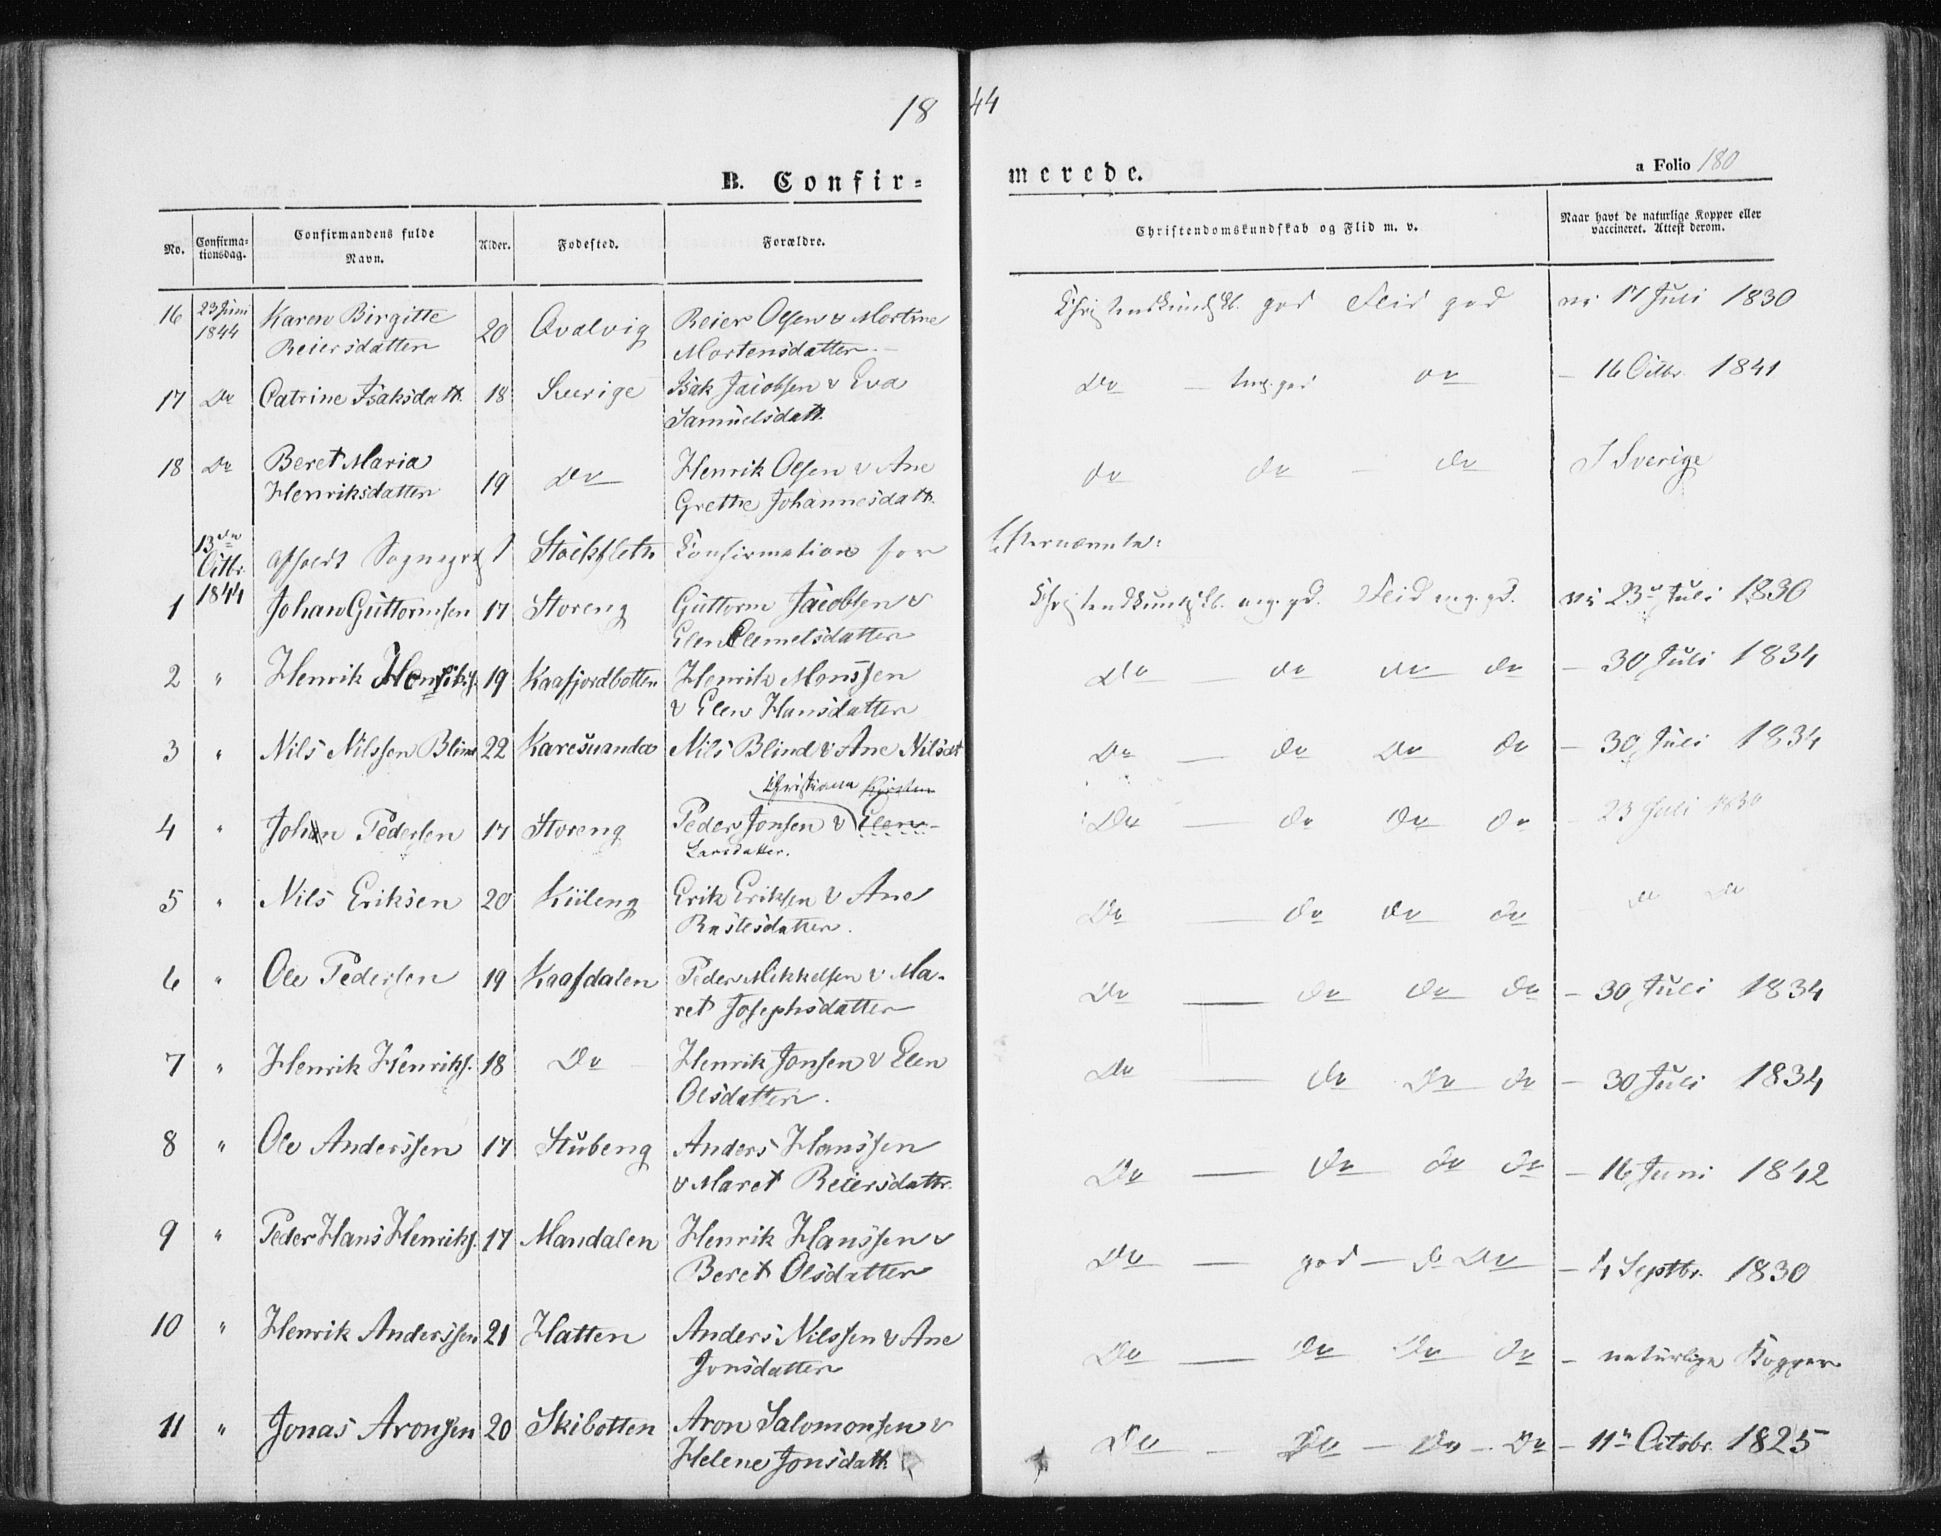 18 44
B. Confir=
merede.
a Folio 180
No.
Confirma-
tionsdag.
Confirmandens fulde
Navn.
Alder.
Fødested.
Forældre.
Christendomskundskab og Flid m. v.
Naar havt de naturlige Kopper eller
vaccineret. Attest derom.
16 23 Juni Karen Birgitte 20 Qvalvig Reier Olsen & Mortine god Flid god 17 Juli 1830
1844 Reiersdatter Mortensdatter.
17 Do Catrine Isaksdatt. 18 Sverige Isak Jacobsen & Eva Do — mg. god do — 16 Octbr. 1841
Samuelsdatt.
18 Do Beret Maria 19 Do Henrik Olsen & Ane do do — do I Sverige
Henriksdatter Grethe Johannesdatt.
13de Octbr. 1844 Sognepr. Stockfleth Confirmation for Efternævnte:
1 Johan Guttormsen 17 Storeng Guttorm Jacobsen & mg. gd. Flid mg. gd. 23de Juli 1830
Elen Clemetsdatter
2 " Henrik Henriks. 19 Kaafjordbotten Henrik Monssen Do — do do do — 30 Juli 1834
& Elen Hansdatter
3 " Nils Nilssen Blind 22 Karesuanda Nils Blind & Ane Nilsdt Do — do do do — 30 Juli 1834
Christiana Kirsten
4 " Johan Pedersen 17 Storeng Peder Jonsen & Elen Do — do do do — 23 Juli 1830
Larsdatter.
5 " Nils Eriksen 20 Kiileng Erik Eriksen & Ane Do — do do do do do
Rastesdatter.
6 " Ole Pedersen 19 Kaafdalen Peder Mikkelsen & Ma- Do — do do do — 30 Juli 1834
ret Josephsdatter
7 " Henrik Henriks. 18 Do Henrik Jonsen & Elen Do — do do do — 30 Juli 1834
Olsdatter.
8 " Ole Anderssen 17 Stubeng Anders Hanssen Do — do do do — 16 Juni 1842
& Maret Reiersdattr.
9 " Peder Hans Henriks. 17 Mandalen Henrik Hanssen & Do — god — do Do — 4 Septbr. 1830
Beret Olsdatter
10 " Henrik Anderssen 21 Hatten Anders Nilssen & Ane Do — do do do — naturlige Kopper
Jonsdatter
11 " Jonas Aronsen 20 Skibotten Aron Salomonsen & Do — Do — do — do — 11te Octobr. 1825
Helene Jonsdatt.